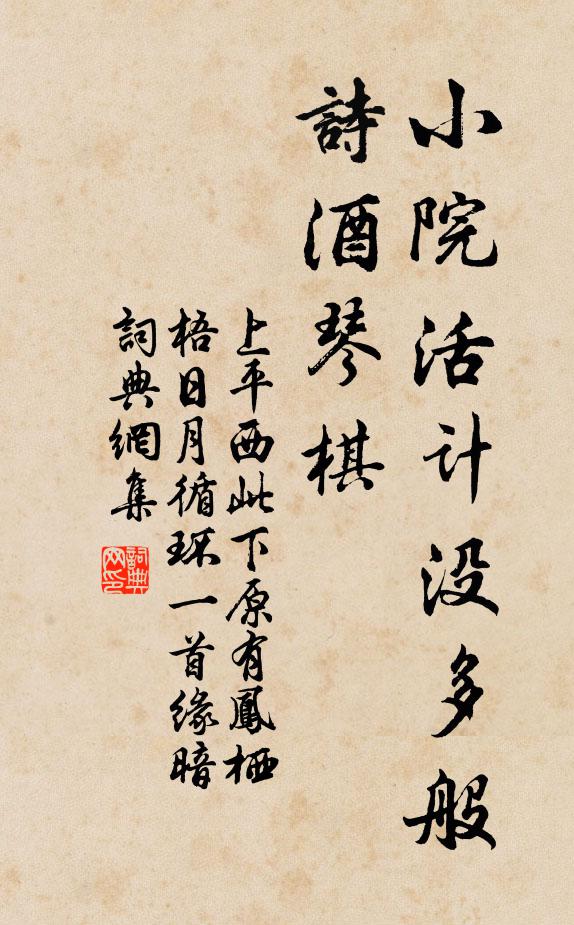 小院活計没多般
詩酒琴棋
上平西此下原有鳳栖
梧日月循环一首緣暗
詞典網集
詞典网印